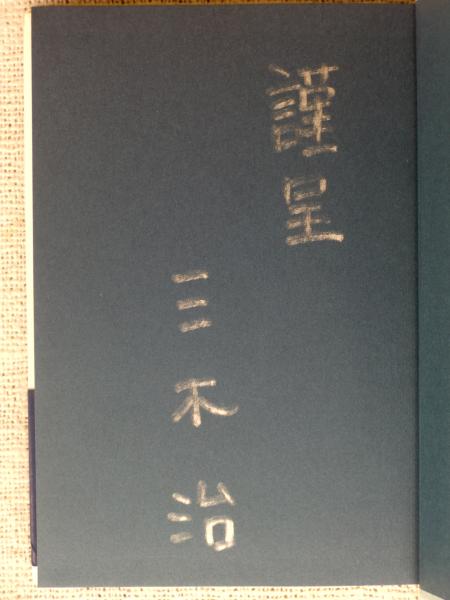 謹呈
三不治